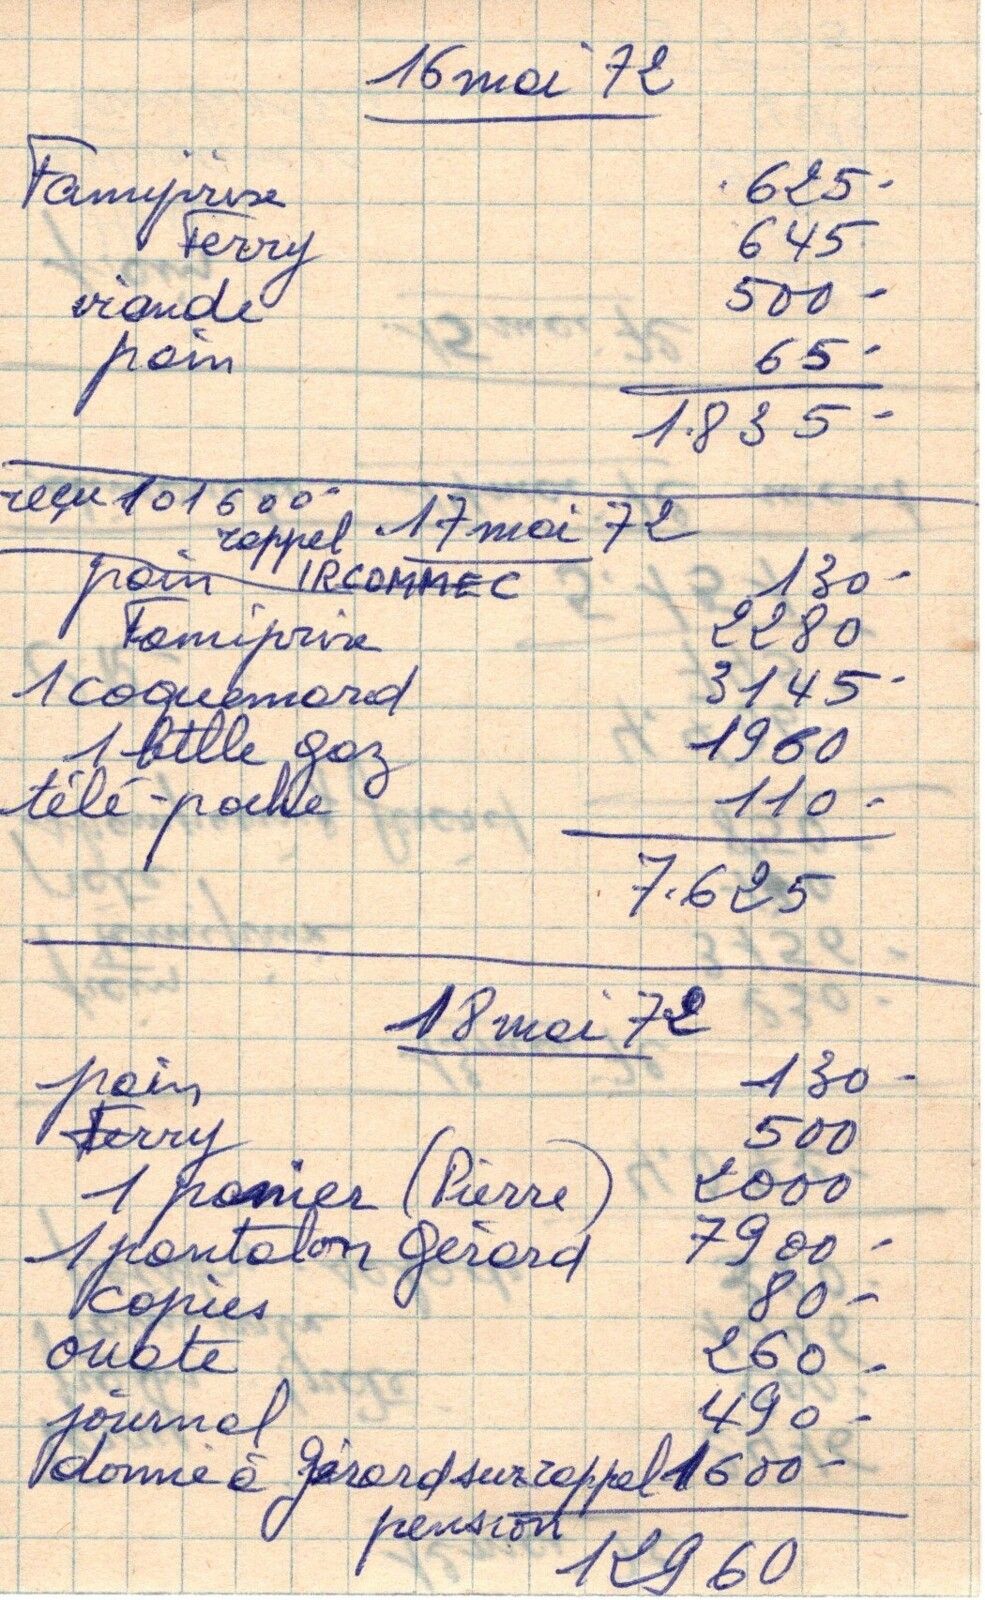 16 mai 72
Famiprix 625-
Ferry 645
viande 500-
pain 65-
1.835-
reçu 101600-
rappel 17 mai 72
pain IRCOMMEC 130-
Famiprix 2280
1 coquemard 3145-
1 btlle gaz 1960
télé-poche 110-
7.625
18 mai 72
pain 130-
Ferry 500
1 panier (Pierre) 2000
1 pantalon Gérard 7900-
copies 80-
ouate 260-
journal 490-
donné à Gérard sur rappel 1600-
pension
12960